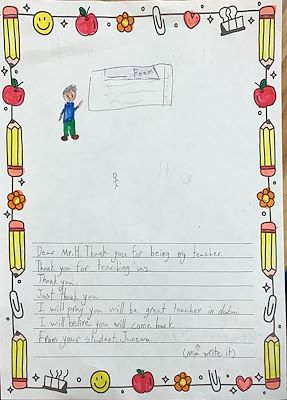 Poem
Dear Mr.H. Thank you for being my teacher.
Thank you for teaching us.
Thank you.
Just thank you
I will pray you will be great teacher in dubai
I will belive you will come back
From your student
write it)